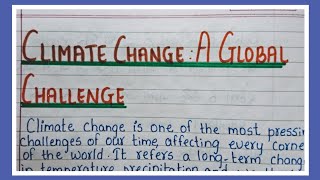 CLIMATE CHANGE: A GLOBAL
CHALLENGE
Climate change is one of the most
challenges of our time, affecting every
of the world. It refers a long-term
in temperature precipitation and